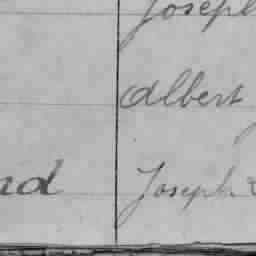 Joseph
Albert
Joseph